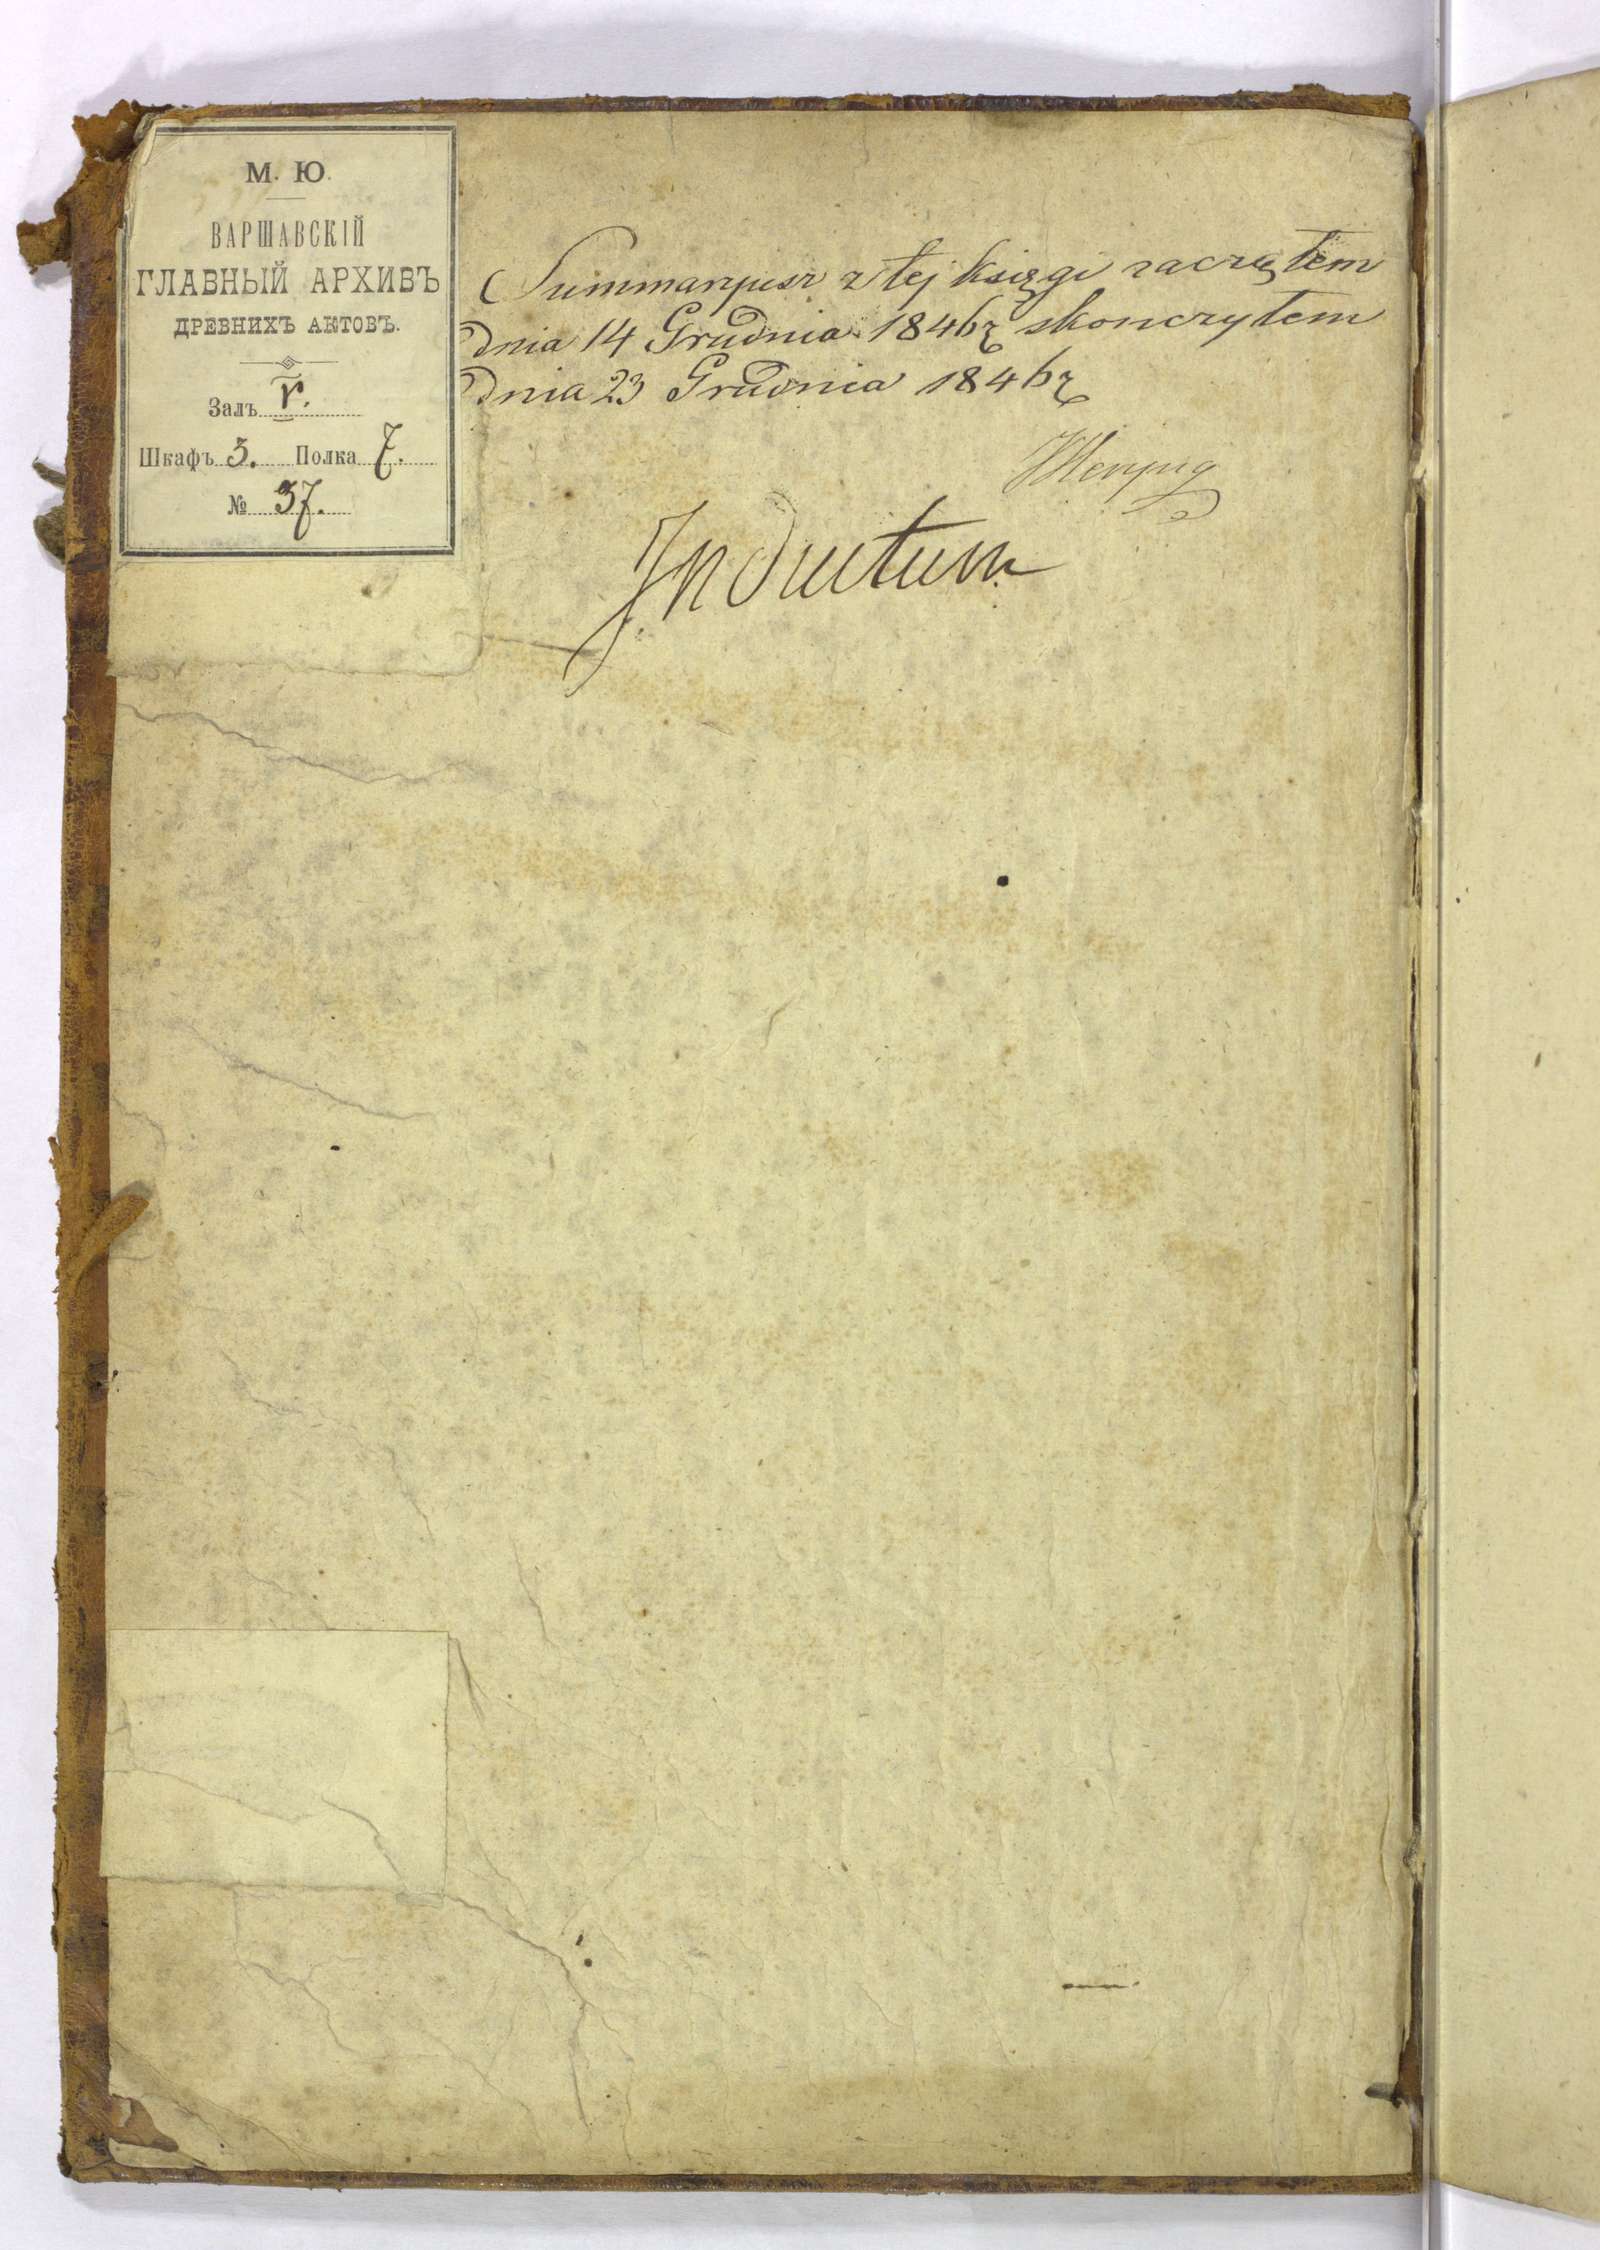 М. Ю.
ВАРШАВСКІЙ
ГЛАВНЫЙ АРХИВЪ
ДРЕВНИХЪ АКТОВЪ.
Залъ V.
Шкафъ 3. Полка 7.
№ 37.
Summaryusz z tej księgi zacząłem
dnia 14 Grudnia 1846 r skonczyłem
dnia 23 Grudnia 1846 r
Inductum